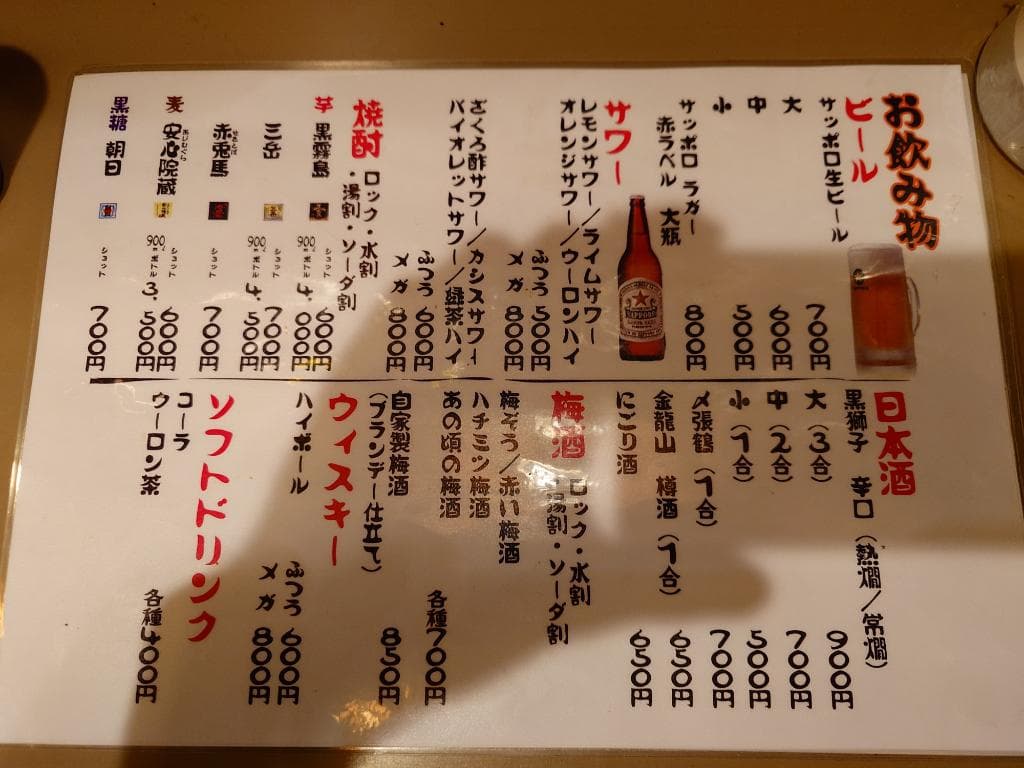 お飲み物
ビール
サッポロ生ビール
大 700円
中 600円
小 500円
サッポロ ラガー
赤ラベル 大瓶 800円
サワー
レモンサワー/ライムサワー
オレンジサワー/ウーロンハイ
ふつう 500円
メガ 800円
ざくろ酢サワー/カシスサワー
バイオレットサワー/緑茶ハイ
ふつう 600円
メガ 800円
焼酎 ロック・水割
・湯割・ソーダ割
芋 黒霧島 ショット 600円
900mlボトル 4,000円
三岳 ショット 700円
900mlボトル 4,500円
赤兎馬 せきとば ショット 700円
麦 安心院蔵 あじむぐら ショット 600円
900mlボトル 3,500円
黒糖 朝日 ショット 700円
日本酒
黒獅子 辛口(熱燗/常燗)
大(3合) 900円
中(2合) 700円
小(1合) 500円
〆張鶴(1合) 700円
金龍山 樽酒(1合) 650円
にごり酒 650円
梅酒 ロック・水割
・湯割・ソーダ割
梅ぞう/赤い梅酒
ハチミツ梅酒
あの頃の梅酒 各種700円
自家製梅酒
(ブランデー仕立て) 850円
ウィスキー
ハイボール ふつう 600円
メガ 800円
ソフトドリンク
コーラ
ウーロン茶 各種400円